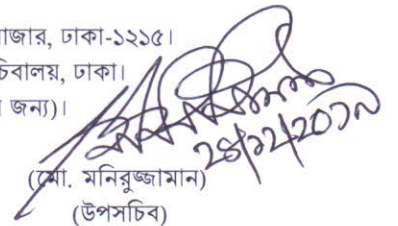 াজার, ঢাকা-১২১৫।
চিবালয়, ঢাকা।
জন্য)।
২৪/১২/২০১৯
(মো. মনিরুজ্জামান)
(উপসচিব)